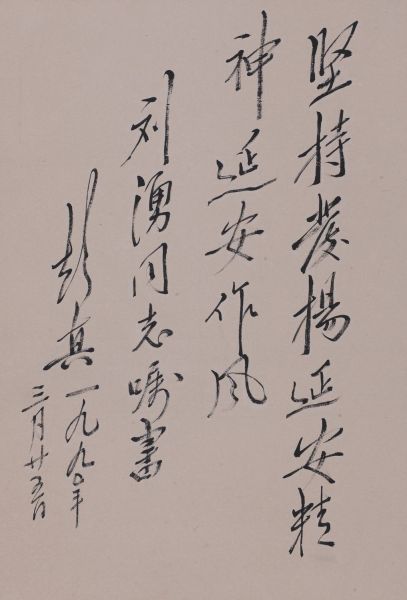 坚持發揚延安精
神延安作风
刘湧同志嘱書
彭真一九九〇年
三月廿五日